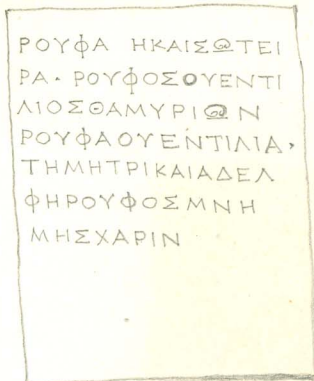 ΡΟΥΦΑ ΗΚΑΙΣΩΤΕΙ
ΡΑ· ΡΟΥΦΟΣΟΥΕΝΤΙ
ΛΙΟΣΘΑΜΥΡΙΩΝ
ΡΟΥΦΑΟΥΕΝΤΙΛΙΑ,
ΤΗΜΗΤΡΙΚΑΙΑΔΕΛ
ΦΗΡΟΥΦΟΣΜΝΗ
ΜΗΣΧΑΡΙΝ